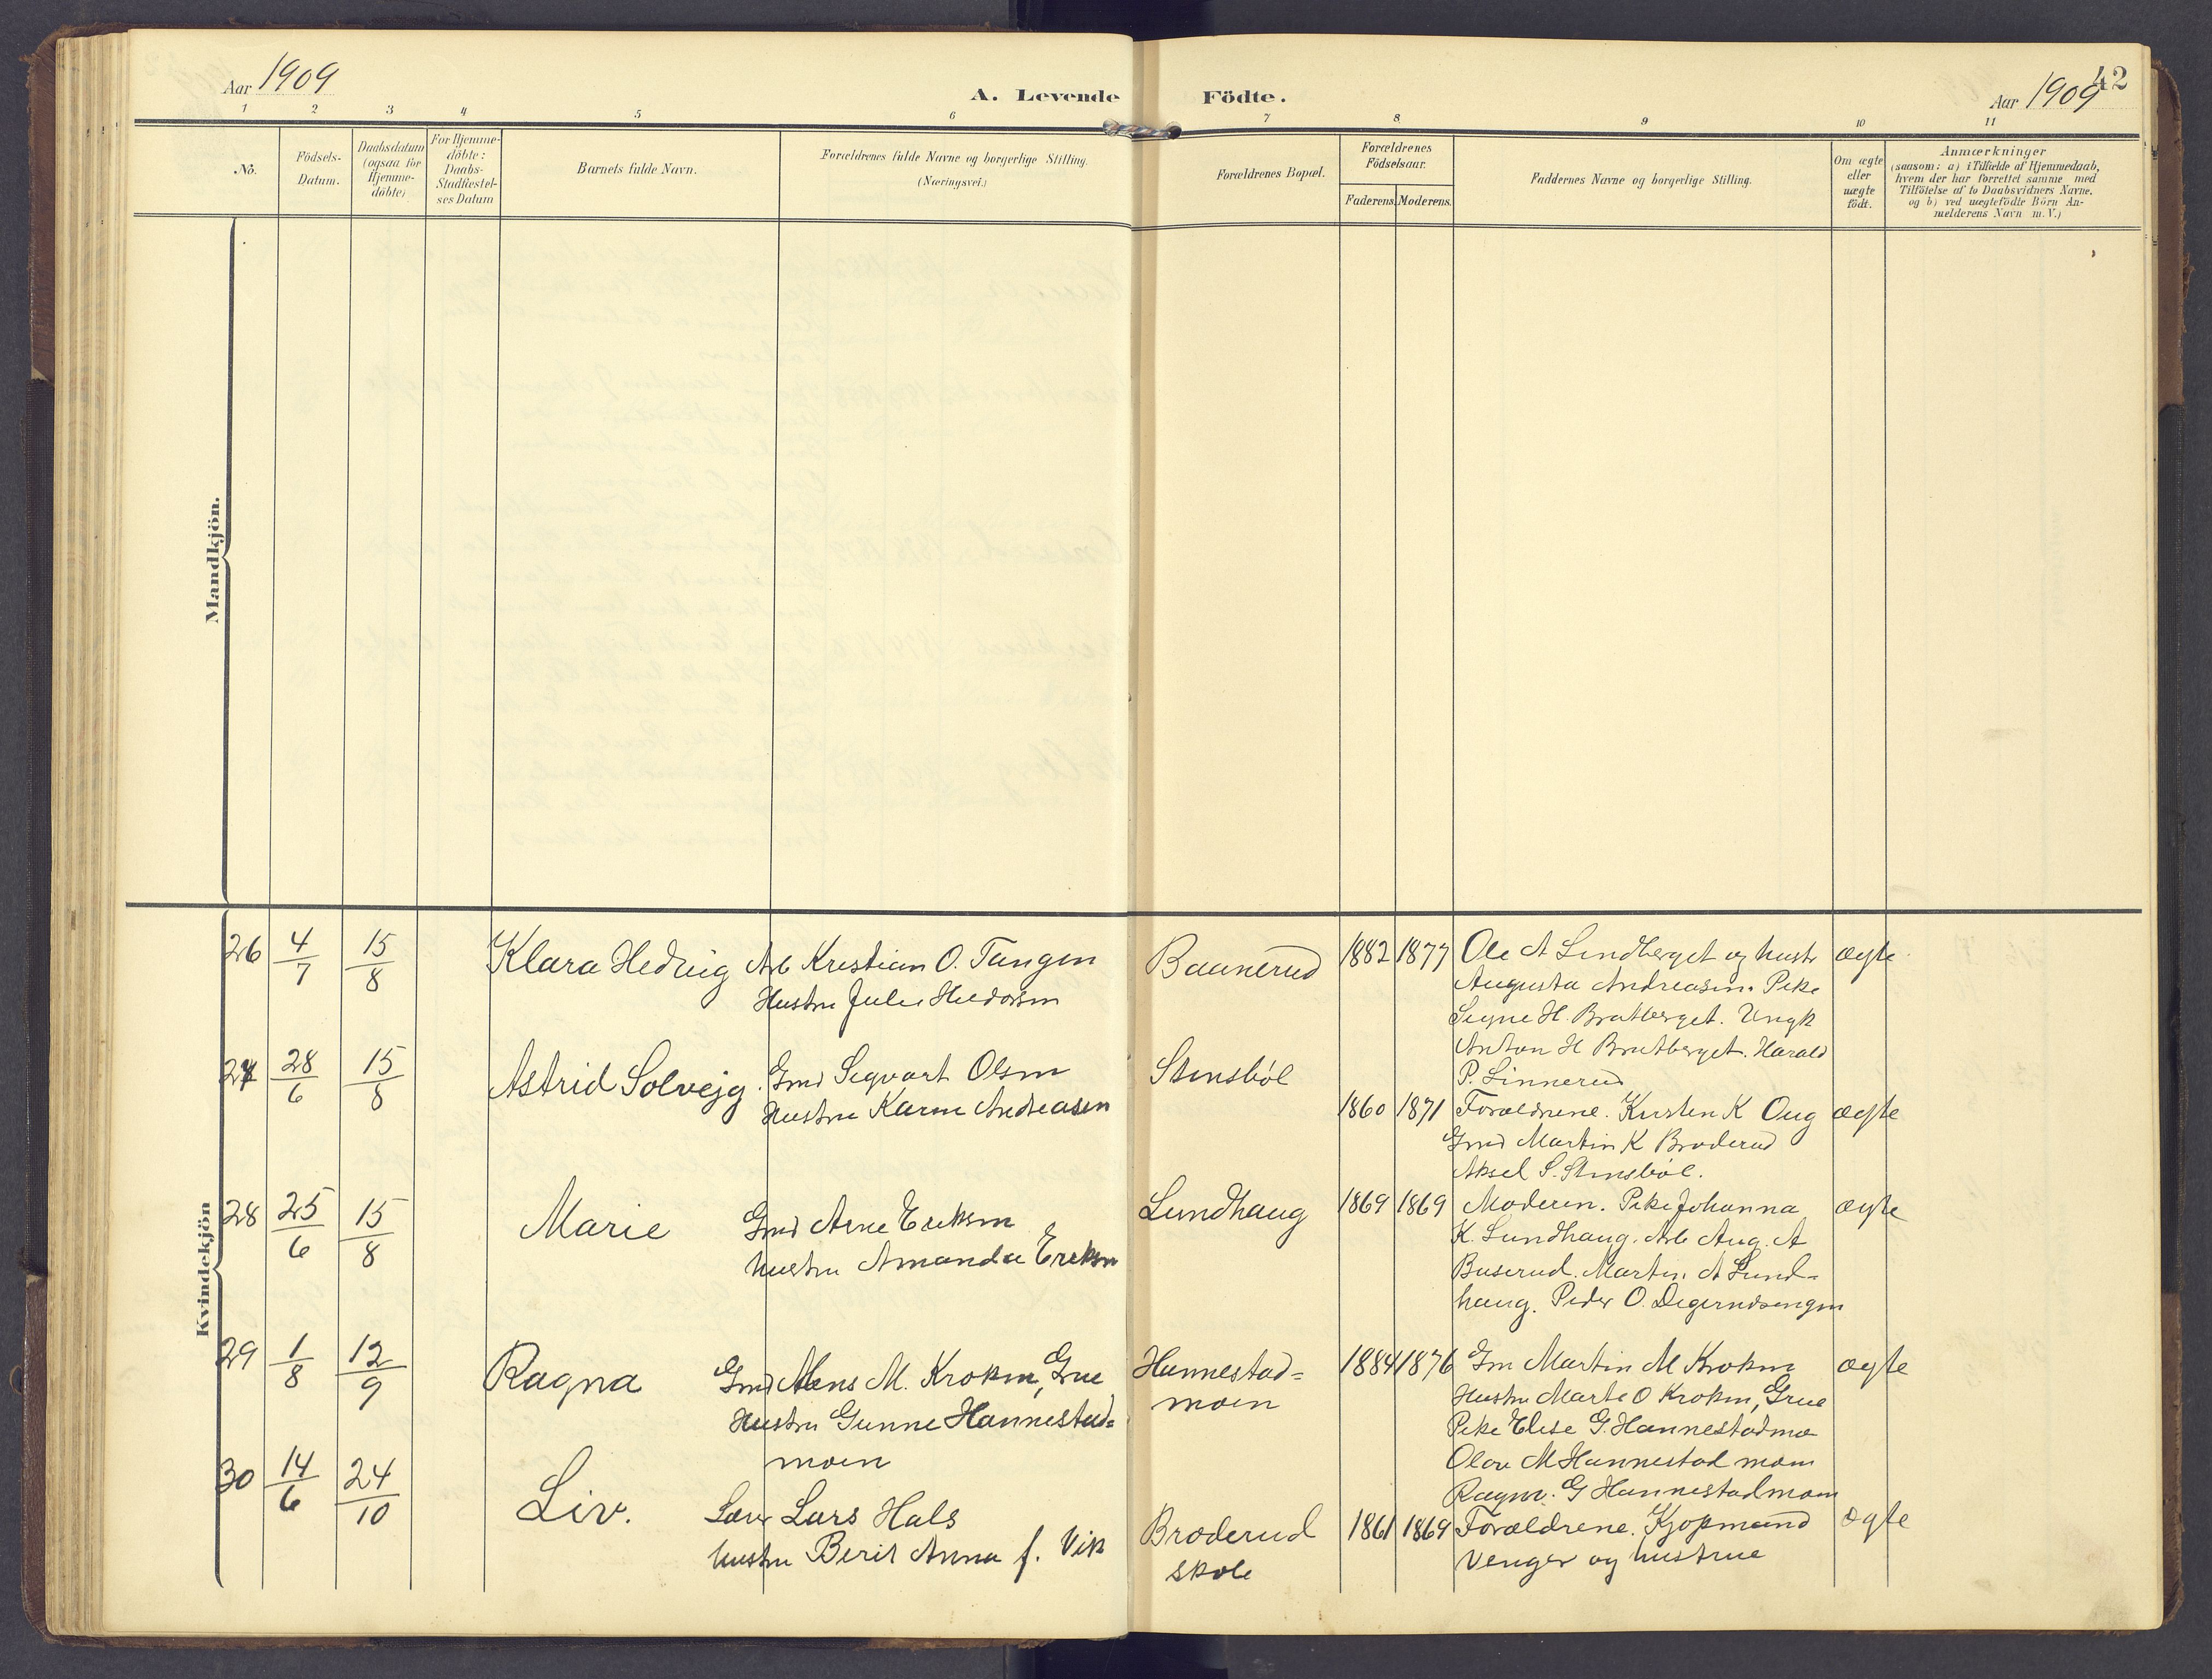 Aar 1909
A. Levende Födte.
Aar 1909
42
1 2 3 4 5 6 7 8 9 10 11
No.
Födsels-Datum.
Daabsdatum (ogsaa for Hjemme-döbte)
For Hjemme-döbte: Daabs-Stadfæstel-ses Datum
Barnets fulde Navn.
Forældrenes fulde Navne og borgerlige Stilling.
(Næringsvei.)
Forældrenes Bopæl.
Forældrenes Födselsaar.
Faderens. Moderens.
Faddernes Navne og borgerlige Stilling.
Om ægte eller uægte födt.
Anmærkninger
(saasom: a) i Tilfælde af Hjemmedaab,
hvem der har forrettet samme med
Tilföielse af to Daabsvidners Navne,
og b) ved uægtefödte Börn An-
melderens Navn m. V.)
Mandkjön.
Kvindekjön
26 4/7 15/8 Klara Hedvig Arb Kristian O. Tangen
Hustru Julie
Baanerud 1882 1877 Ole A Lindberget og hustr ægte
Augusta Andreasen. Pike
Signe H. Bratberget. Ungk
Anton H Bratberget. Harald
P. Linnerud
27 28/6 15/8 Astrid Solvejg. Gmd Sigvart Olsen
Hustru Karen Andreasen
Stensböl 1860 1871 Forældrene. Kirsten K Oug ægte
Gmd Martin K Broderud
Aksel S. Stensböl.
28 25/6 15/8 Marie Gmd Arne Eriksen
hustru Amanda Eriksen
Lundhaug 1869 1869 Moderen. Pike Johanna ægte
K. Lundhaug. Arb Aug. A
Buserud. Martin A Lund-
haug. Peder O. Digerudsengen
29 1/8 12/9 Ragna Gmd Mons M. Kroken, Grue
Hustru Gunne Hannestad=
moen
Hannestad=
moen
1884 1876 Gm Martin M Kroken ægte
Hustru Marte O Kroken, Grue
Pike Elise G. Hannestadmo
Olav M Hannestad moen
Ragnv. G Hannestadmoen
30 14/6 24/10 Liv. Lærer Lars Hals
hustru Berit Anna f. Vik
Broderud
skole
1861 1869 Forældrene. Kjøpmand ægte
Venger og hustrue